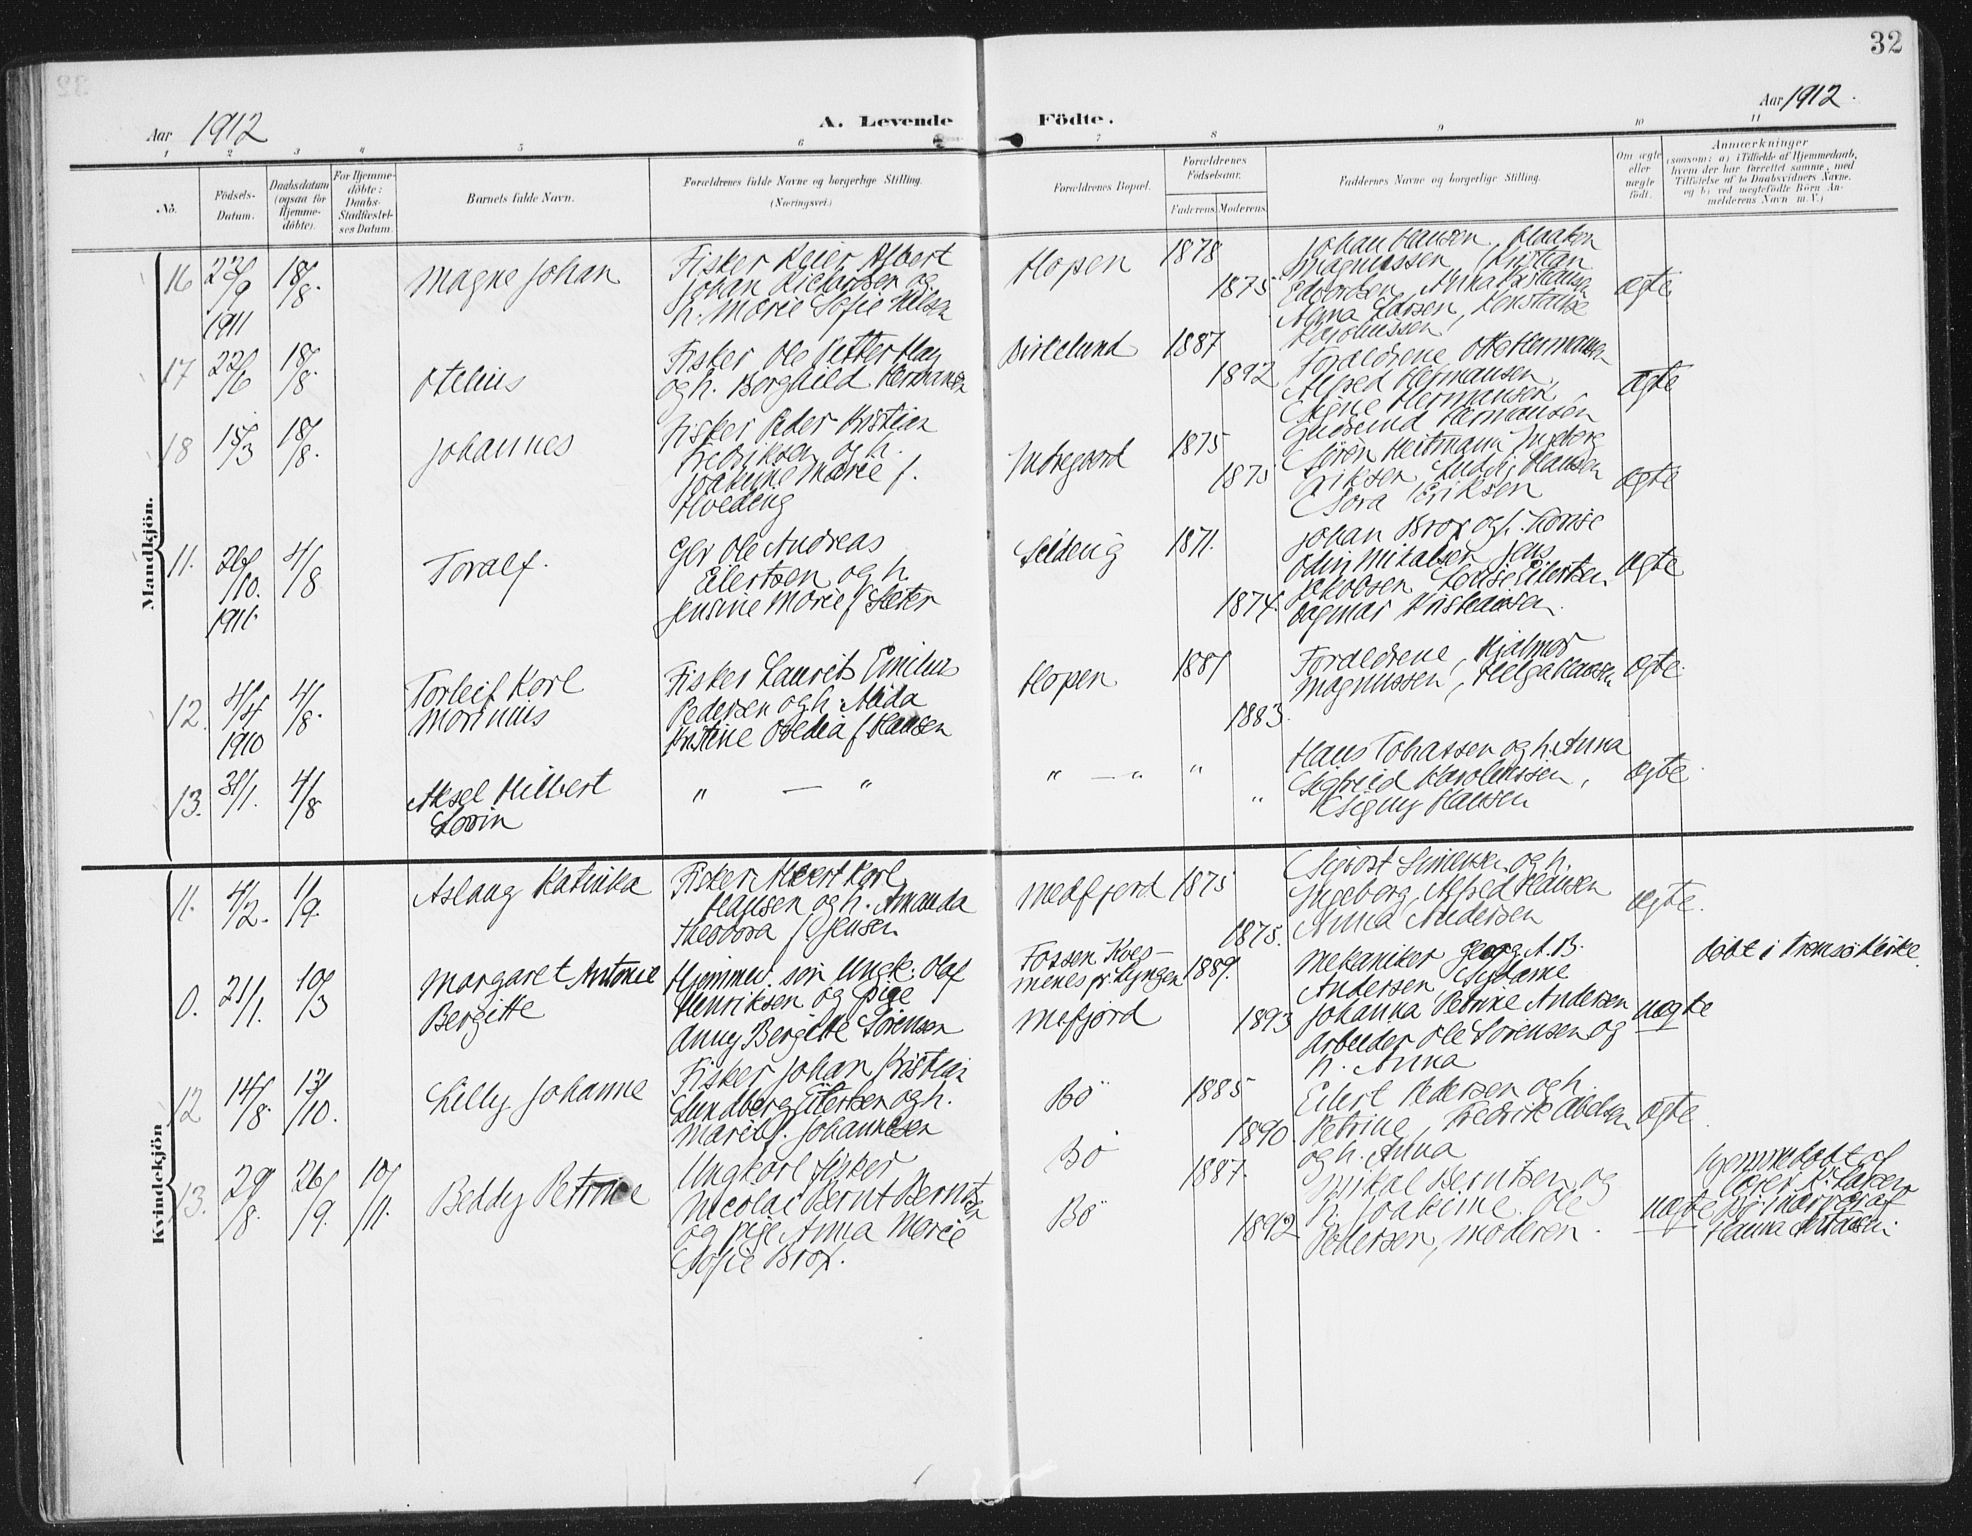 32
Aar 1912
A. Levende Födte.
Aar 1912.
1 2 3 4 5 6 7 8 9 10 11
No.
Födsels-
Datum.
Daabsdatum
(ogsaa for
Hjemme-
döbte).
For Hjemme-
döbte:
Daabs-
Stadfæstel-
ses Datum.
Barnets fulde Navn.
Forældrenes fulde Navne og borgerlige Stilling.
(Næringsvei.)
Forældrenes Bopæl.
Forældrenes
Födselsaar.
Faderens. Moderens.
Faddernes Navne og borgerlige Stilling.
Om ægte
eller
uægte
födt.
Anmærkninger
(saasom: a) i Tilfælde af Hjemmedaab,
hvem der har forrettet samme, med
Tilföielse af to Daabsvidners Navne.
og b) ved uegtefödte Börn An-
melderens Navn m. V.)
Mandkjön.
16
18/8.
Magne Johan
Fisker Peier Albert
Johan Richardsen og
h. Marie Sofie
Hopen
1878
1875
Johan Hansen, Haakon
Magnussen, Kristian
Edvardsen, Anna Kristiansen
Anna Larsen, Konstanse
Karoliussen
ægte
1911
17
22/6
18/8.
Otelius
Fisker Ole Petter Hay
og h. Borghild Hermansen
Birkelund
1887
1892
Foraldrene, Otte Hermansen
Alfred Hermansen,
Signe Hermansen,
Gudrund Hermansen
ægte
18
15/3
18/8.
Johannes
Fisker Peder Kristian
Fredriksen og h.
Joakime Marie f.
Hveding
Indregaard
1875
1875
Sören Heitmann, Ingeborg
Eriksen, Ludvig Hansen
Sora Eriksen
ægte
11.
26/10.
1911.
4/8
Toralf.
Gbr Ole Andreas
Eilertsen og h.
Jensine Marie f Sæter
1871.
1874.
Johan Brox og h. Lovise
Odin Mikalsen, Jens
Jakobsen, Lovise Eilertsen
Dagmar Kristiansen.
ægte
12.
4/4
1910
4/8.
Torleif Karl
Marinius
Fisker Laurits Emilius
Pedersen og h. Alida
Kristine Ovedia f Hansen
Hopen
1881
1883.
Foraldrene, Hjalmar
Magnussen, Helga Hansen
ægte.
13.
31/1.
4/8
Aksel Hilbert
Lorin
" — "
" — " "
"
Hans Tobiassen og h. Anna
Sigfrid Karolinssen,
Signy Hansen
ægte.
Kvindekjön
11.
4/2.
1/9.
Aslaug Katinka
Fisker Albert Karl
Hansen og h. Amanda
Theodora f Jensen
Medfjord
1875
1875.
Sigvart Simensen og h.
Ingeborg, Alfred Hansen
Anna Andersen
ægte.
0.
21/1.
10/3
Margaret Antonie
Bergitte
Hjemmev. sön Ungk. Olaf
Henriksen og pige
Anny Bergitte Sörensen
Fossen Kves-
menes pr. Lyngen
Mefjord
1889.
1893
Mekaniker Georg A. B.
Andersen, Sydame
Johanna Petrine Andersen
Arbeider Ole Sorensen og
h. Anna
uægte
döbt i Tromsö Kirke.
12
14/8.
13/10.
Lilly Johanne
Fisker Johan Kristian
Lundberg Eilertsen og h.
Marie f. Johannesen
Bö
1885
1890
Eilert Pedersen og h.
Petrine, Fredrik Abelsen
og h. Anna
ægte.
13.
29/8.
26/9.
10/11.
Beddy Petrine
Ungkarl fisker
Nicolai Bernt Berntsen
og pige Anna Marie
Sofie Brox.
Bö
Bö
1887.
1892
Mikal Berntsen og
h. Joakime, Ole
Pedersen, moderen.
uægte
hjemmedöbt af